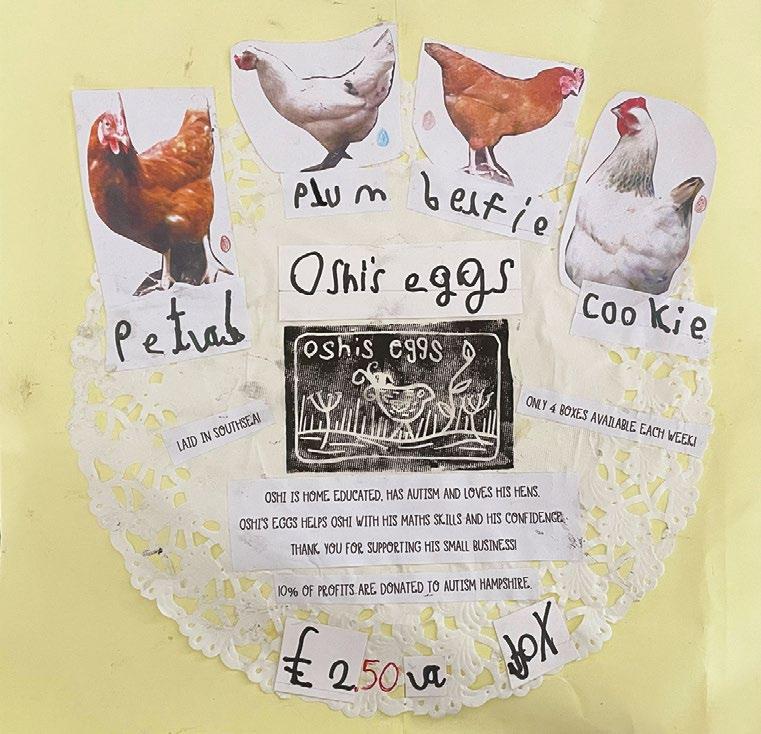 plum
belfie
petral
cookie
Oshi's eggs
oshis eggs
LAID IN SOUTHSEA!
ONLY 4 BOXES AVAILABLE EACH WEEK!
OSHI IS HOME EDUCATED, HAS AUTISM AND LOVES HIS HENS.
OSHI'S EGGS HELPS OSHI WITH HIS MATHS SKILLS AND HIS CONFIDENCE.
THANK YOU FOR SUPPORTING HIS SMALL BUSINESS!
10% OF PROFITS ARE DONATED TO AUTISM HAMPSHIRE.
£2.50 a box